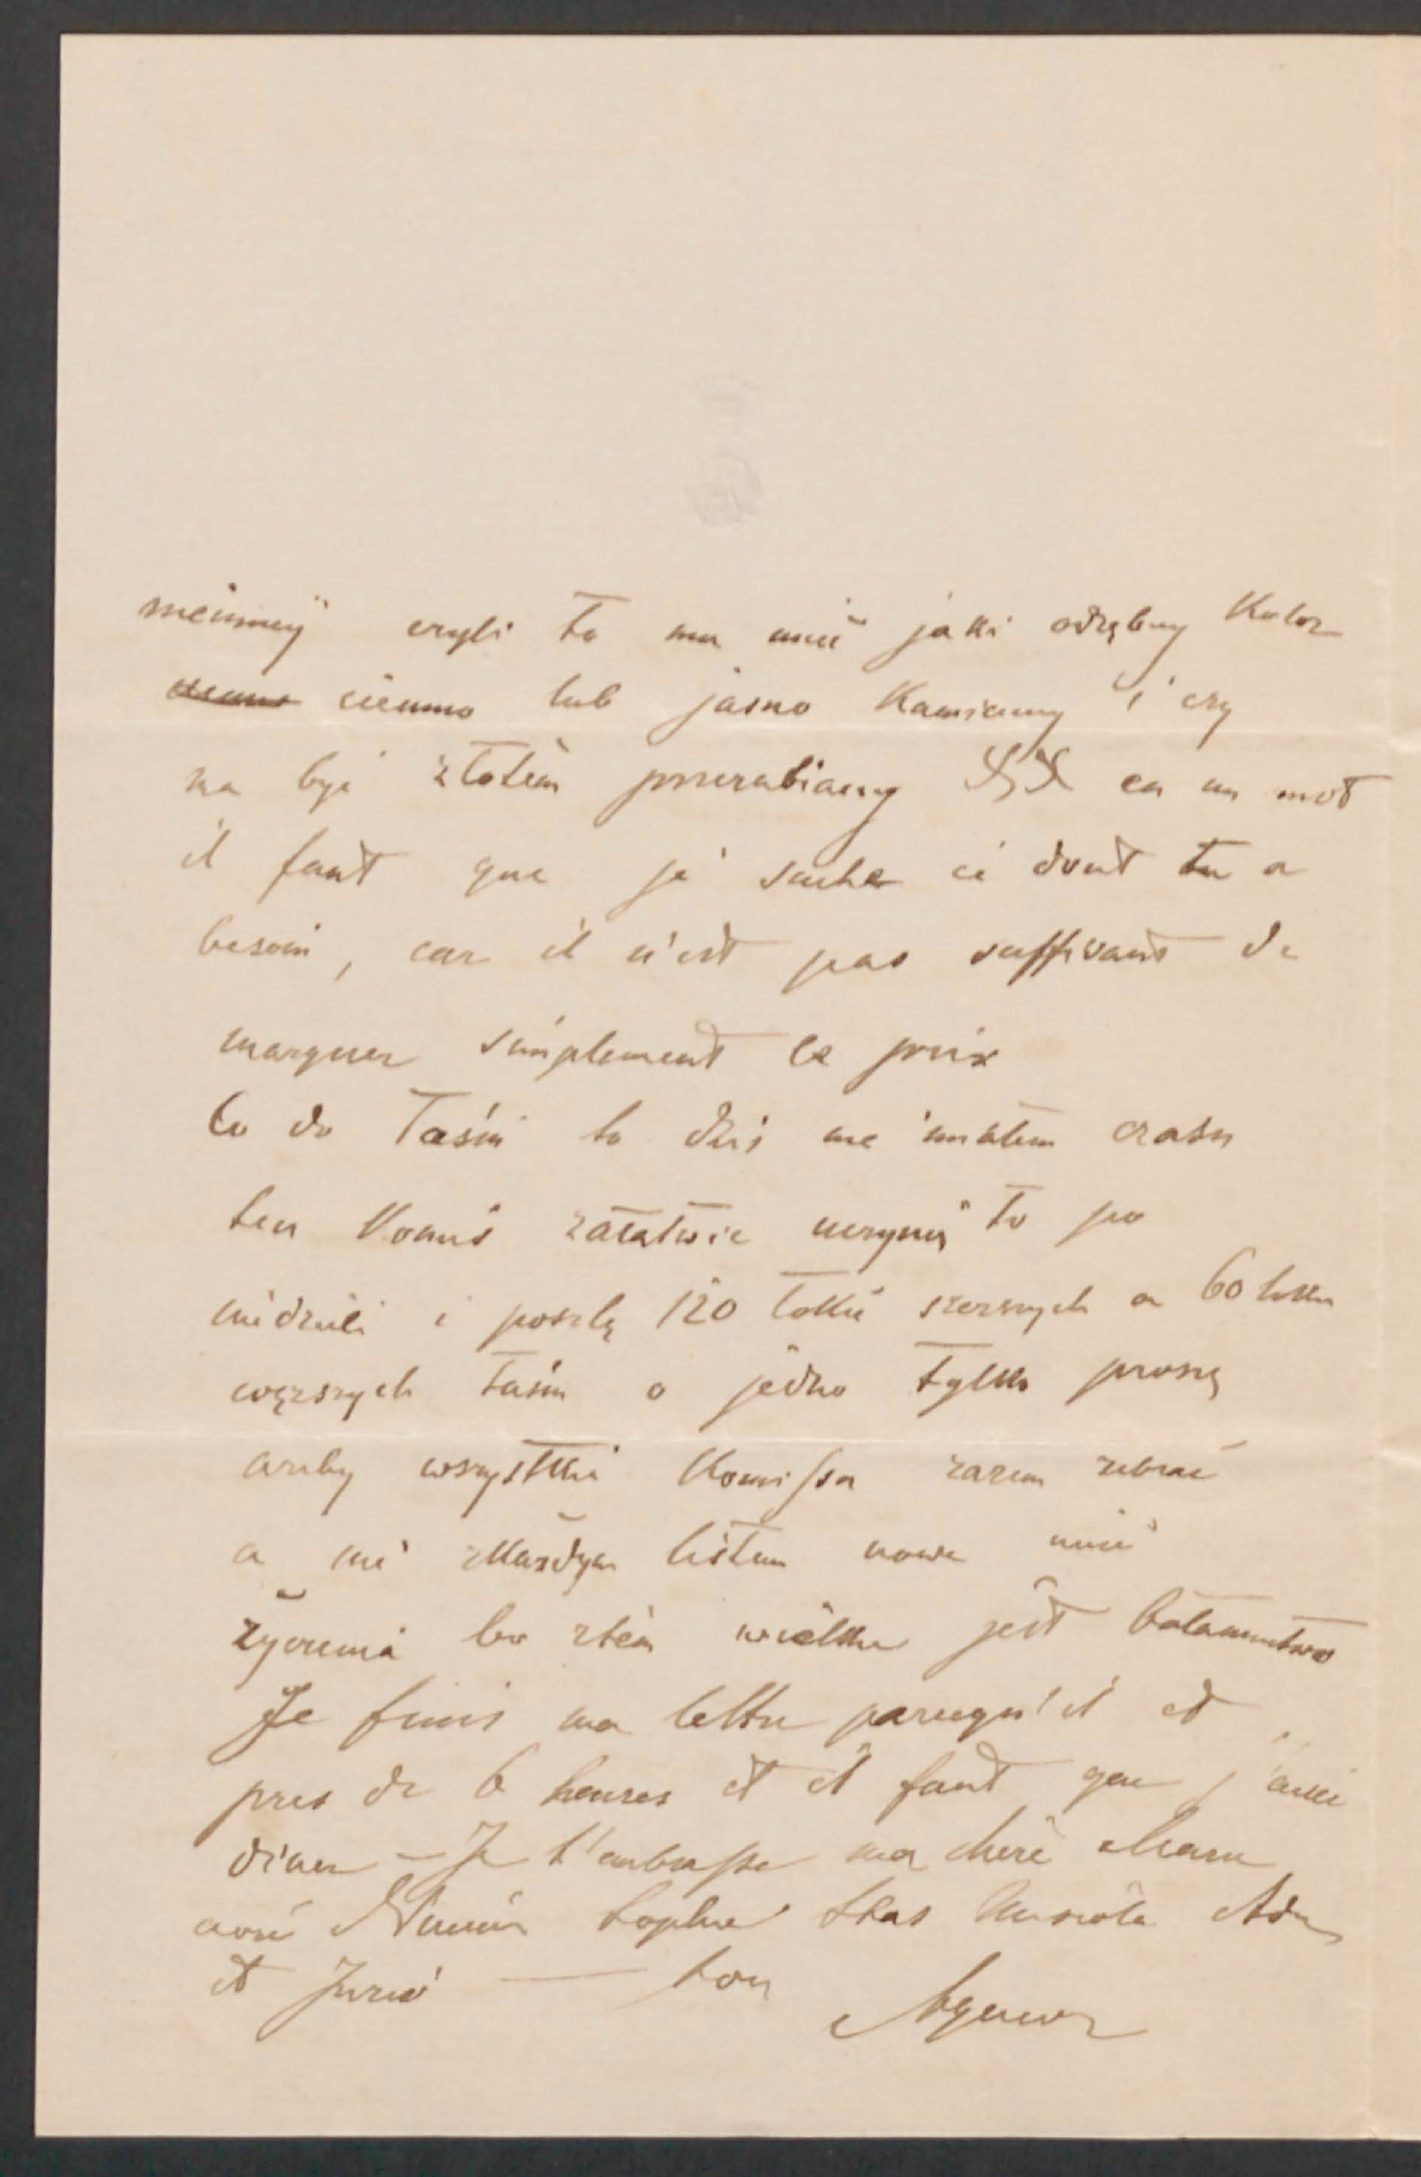 czyli to ma mieć jaki odrębny Kolor
ciemno lub jasno Kamienny i czy
ma być złotem przerabiany en un mot
il faut que je sache ce dont tu a
besoin, car il n'est pas suffisant de
marquer simplement le prix
Co do Taśm to dziś nie miałem czasu
ten Komis załatwić uczynię to po
niedzieli i poszlę 120 łokci szerszych a 60 łokci
węższych taśm o jedno tylko proszę
azeby wszystkie Komissa razem zebrać
a nie zkażdym listem nowe mieć
życzenia bo ztém wielkie jest bałamuctwo
Je finis ma lettre parcequ'il est
pres de 6 heures et il faut que j'aille
diner – Je t'embrasse ma chere
Sophie Stas Adas
et Jurio — ton